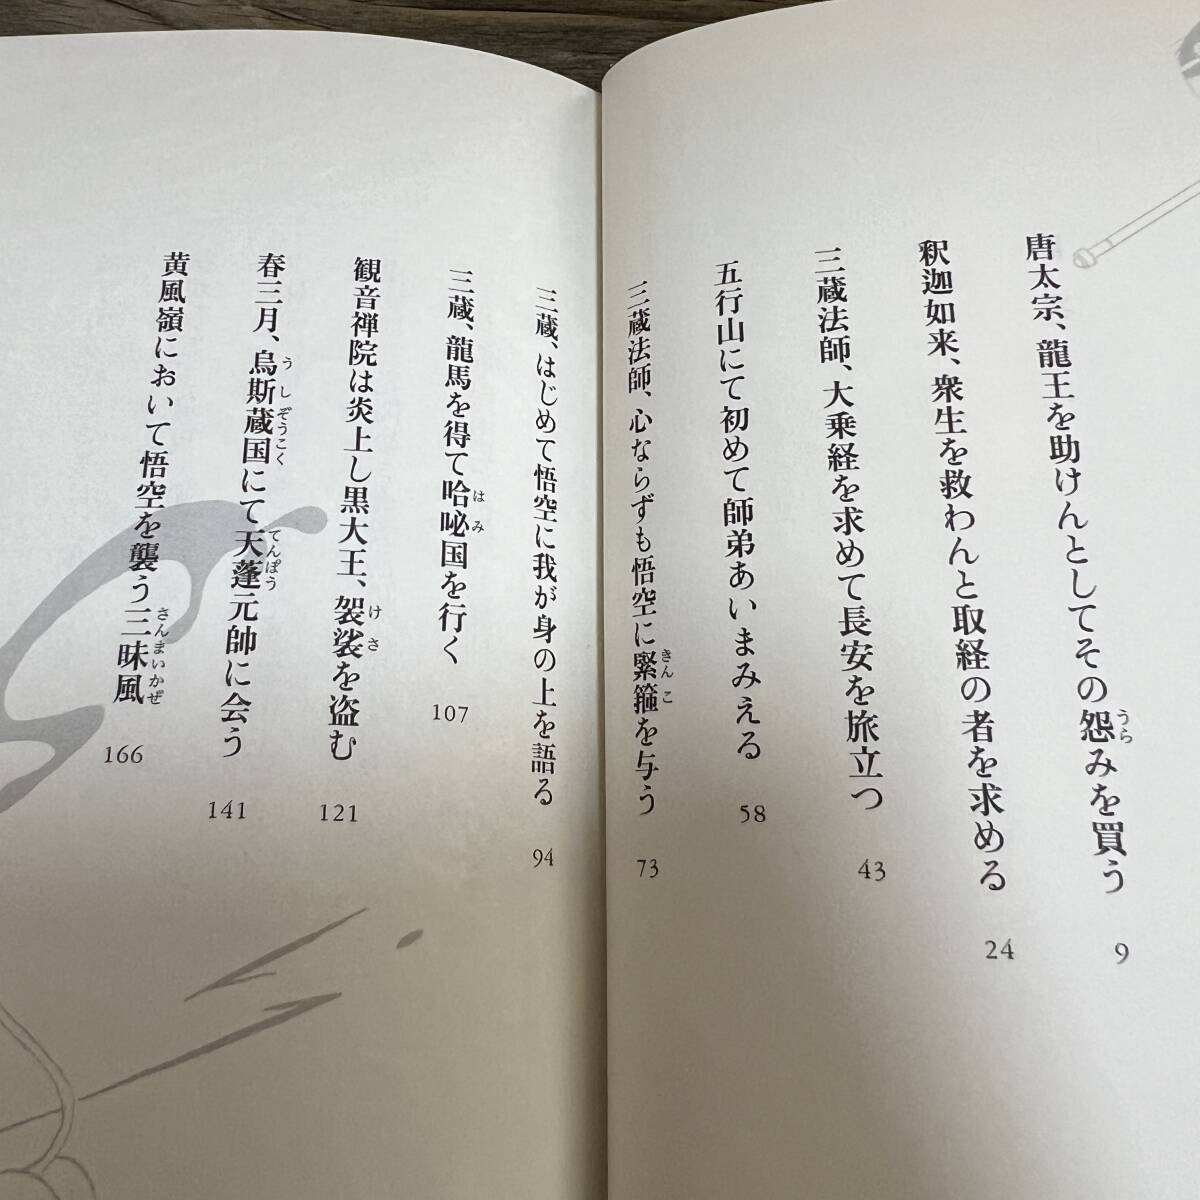 唐太宗、龍王を助けんとしてその怨みを買う 9
釈迦如来、衆生を救わんと取経の者を求める 24
三蔵法師、大乗経を求めて長安を旅立つ 43
五行山にて初めて師弟あいまみえる 58
三蔵法師、心ならずも悟空に緊箍を与う 73
三蔵、はじめて悟空に我が身の上を語る 94
三蔵、龍馬を得て哈咇国を行く 107
観音禅院は炎上し黒大王、袈裟を盗む 121
春三月、烏斯蔵国にて天蓬元帥に会う 141
黄風嶺において悟空を襲う三昧風 166
うら
きんこ
はみ
けさ
うしぞうこく
てんぽう
さんまいかぜ